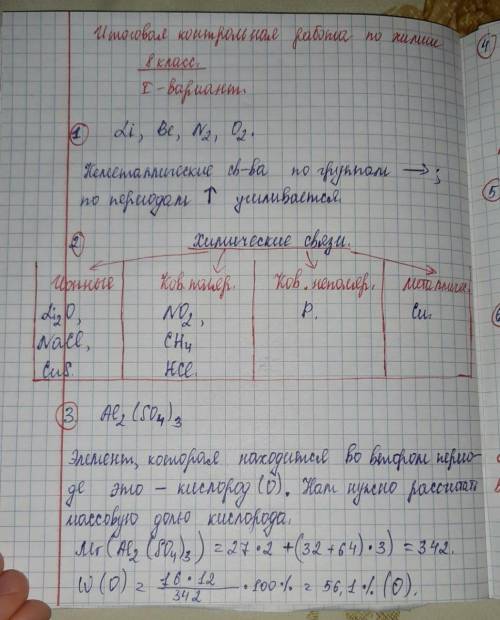 Итоговая контрольная работа по химии
8 класс.
I-вариант.
① Li, Be, N₂, O₂.
Неметаллические св-ва по группам →;
по периодам ↑ усиливается.
② Химические связи.
Ионные Ков. поляр. Ков. неполяр. Металлич.
Li₂O, NO₂, P. Cu.
NaCl, CH₄
CuS. HCl.
③ Al₂(SO₄)₃
Элемент, которая находится во втором перио-
де это – кислород (O). Нам нужно рассчитать
массовую долю кислорода.
Mr(Al₂(SO₄)₃) = 27·2 + (32+64)·3) = 342.
W(O) = 16·12/342 · 100% = 56,1% (O).
④
⑤